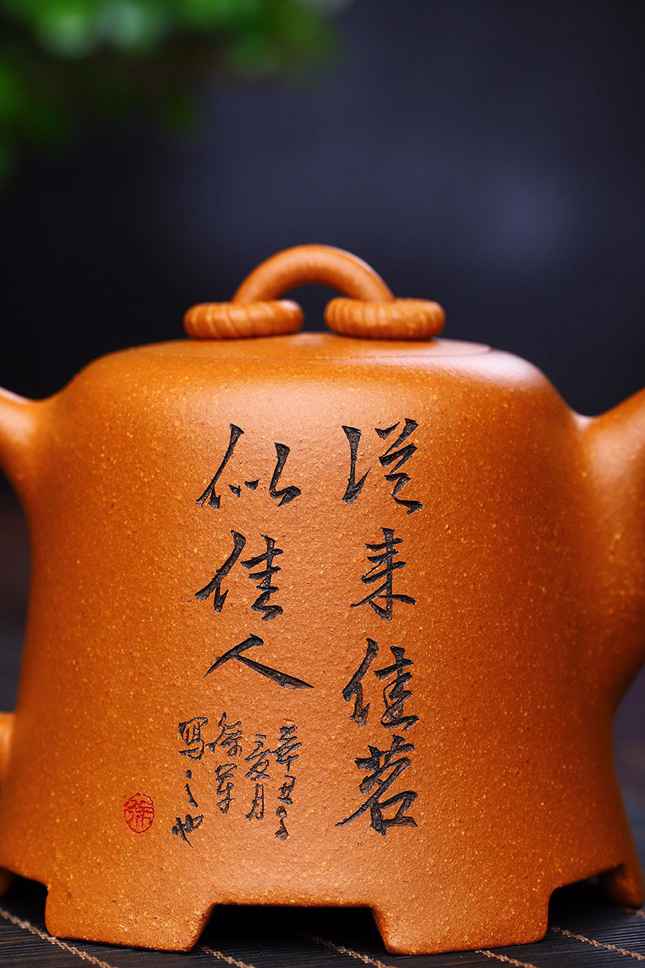 從来佳茗
似佳人
辛丑之
夏月
徐
寫之也
徐